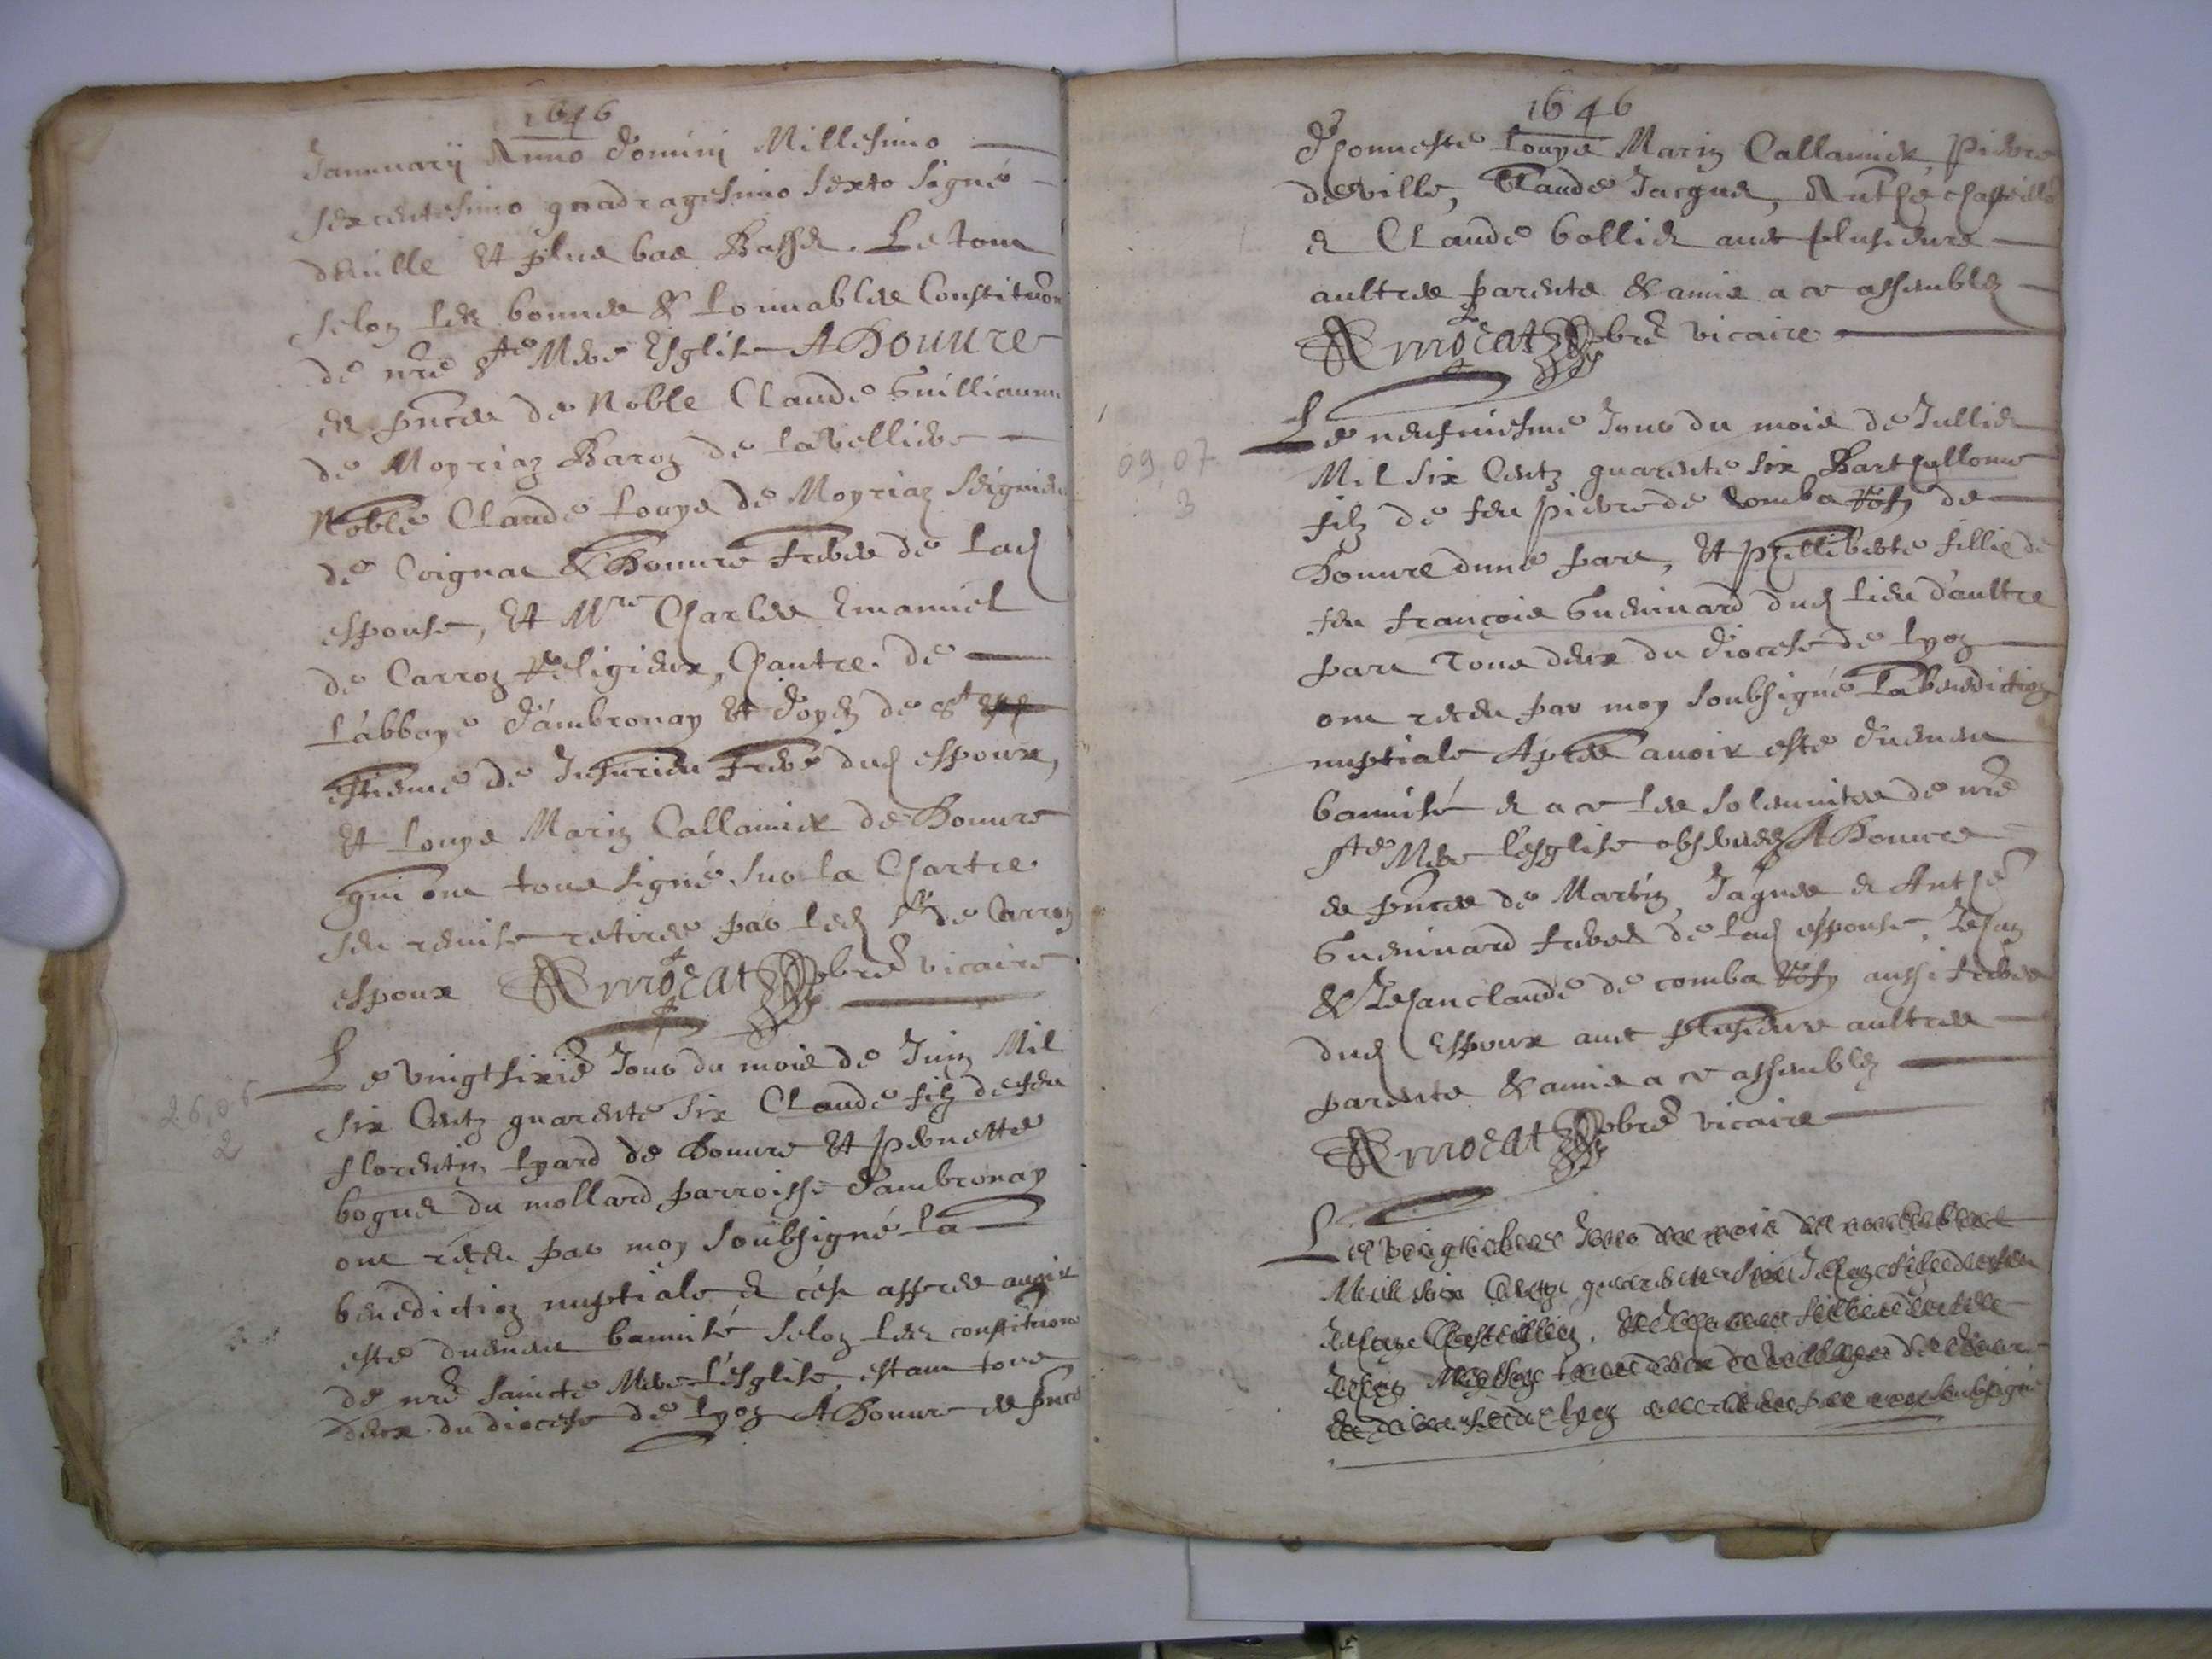 1646
Januuarij Anno Domini Millesimo
sexcentesimo quadragesimo sexto signé
deville Et plus bas Basset. Le tout
selon les bonnes & louuables Constituõn
de nrẽ Ste Mere Esglise A Douure
es pñces de Noble Claude Guilliaume
de Moyriaz Baron de la Velliere
Noble Claude Louys de Moyriaz Seigneur
de Coignat & Douure freres de lad
espouse, Et Mre Charles Emanuel
de Carron Religieux, Chantre de
L'abbaye d'ambronay Et doyen de St
estienne de Jusurieu frere dud espoux,
Et Louys Marin Callamier de Douure
qui ont tous signé sur la Chartre
seu remise retiree par led Sr de Carron
espoux Armocat pbrẽ vicaire
Le vingtsixiẽ Jour du mois de Juin Mil
26,06
2
six Centz quarente six Claude filz de feu
florentin Lyard de Douure Et pernette
bogues du mollard parroisse d'ambronay
ont receu par moy soubsigné la
benediction nuptiale et ce apres auoir
esté deuement bannisé selon les constitutions
de nrẽ saincte Mere L'esglise, estant tous
deux du diocese de Lyon A Douure es pñce
1646
D'honneste Louys Marin Callamier pierre
deville, Claude Jacques, Anthẽ
et Claude bollier auec plusieurs
aultres parents & amis a ce assemblez
Armocat pbrẽ vicaire
Le neufuiesme Jour du mois de Jullier
09,07
3
Mil six Centz quarente six Barthellome
filz de feu pierre de comba de
Douure d'une part, Et phillberte fillie de
feu françois Gueninard dud lieu d'aultre
part Tous deux du diocese de Lyon
ont receu par moy soubsigné la benediction
nuptiale Apres auoir esté duement
bannisé et a ce les solennites de nrẽ
Ste Mere l'esglise obseruez A Douure
es pñces de Martin, Jaques et Anthẽ
Gueninard freres de lad espouse, Jehan
& Jehanclaude de comba aussi freres
dud Espoux auec plusieurs aultres
parents & amis a ce assemblez
Armocat pbrẽ vicaire